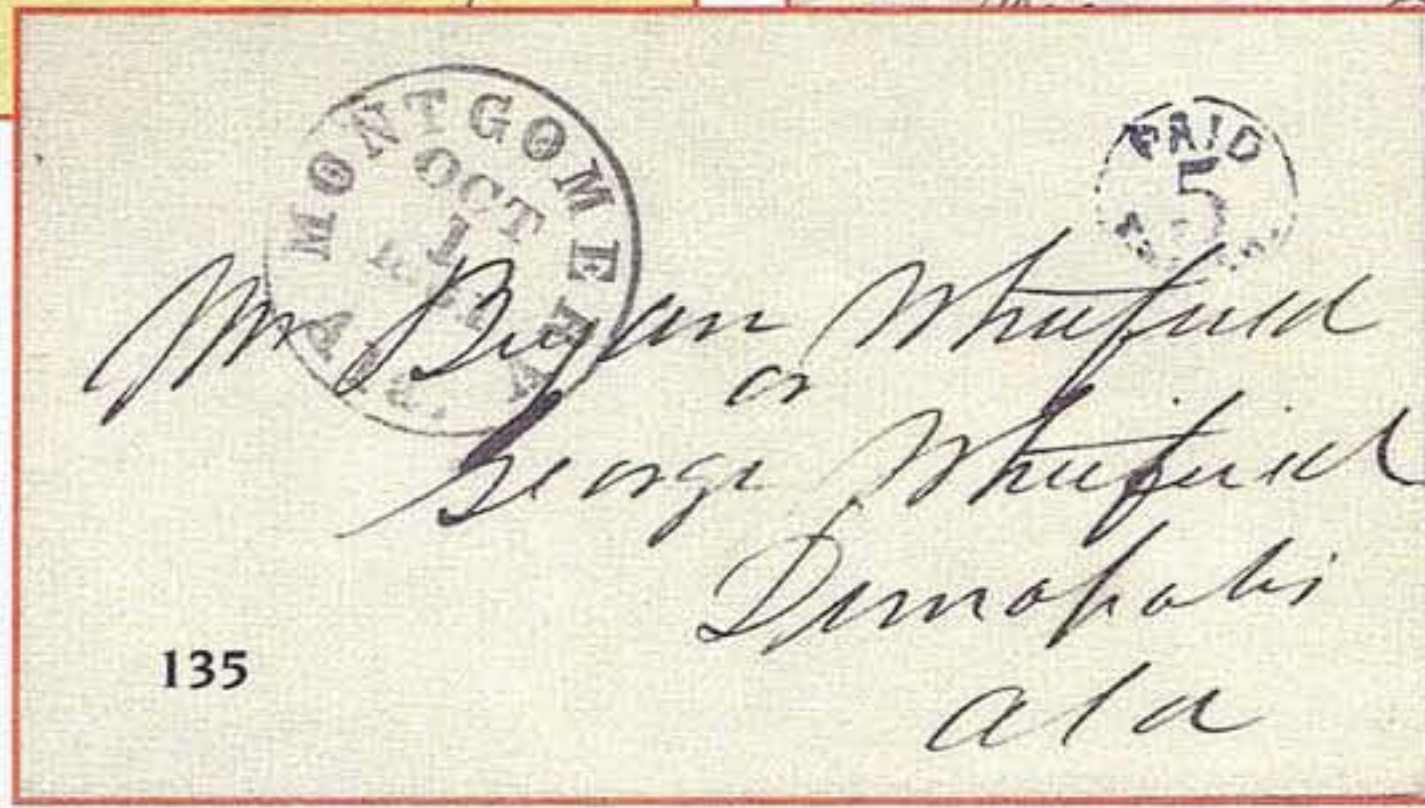 MONTGOMERY ALA.
OCT
1
PAID
5
Mr Bryan Whitfield
or
George Whitfield
Demopolis
Ala
135